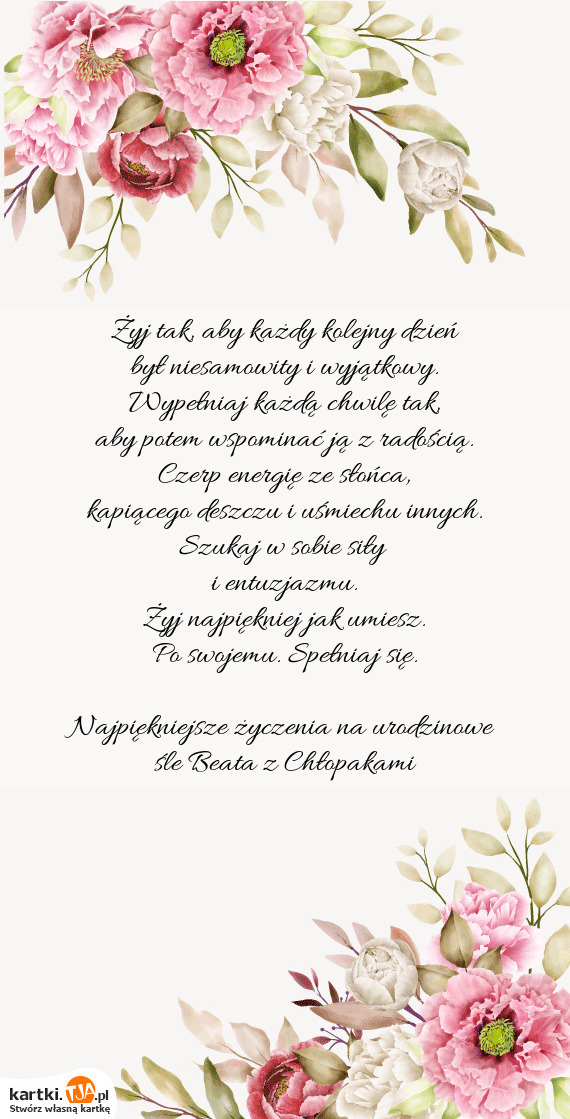 Żyj tak, aby każdy kolejny dzień
był niesamowity i wyjątkowy.
Wypełniaj każdą chwilę tak,
aby potem wspominać ją z radością.
Czerp energię ze słońca,
kapiącego deszczu i uśmiechu innych.
Szukaj w sobie siły
i entuzjazmu.
Żyj najpiękniej jak umiesz.
Po swojemu. Spełniaj się.
Najpiękniejsze życzenia na urodzinowe
śle Beata z Chłopakami
kartki.TJA.pl
Stwórz własną kartkę